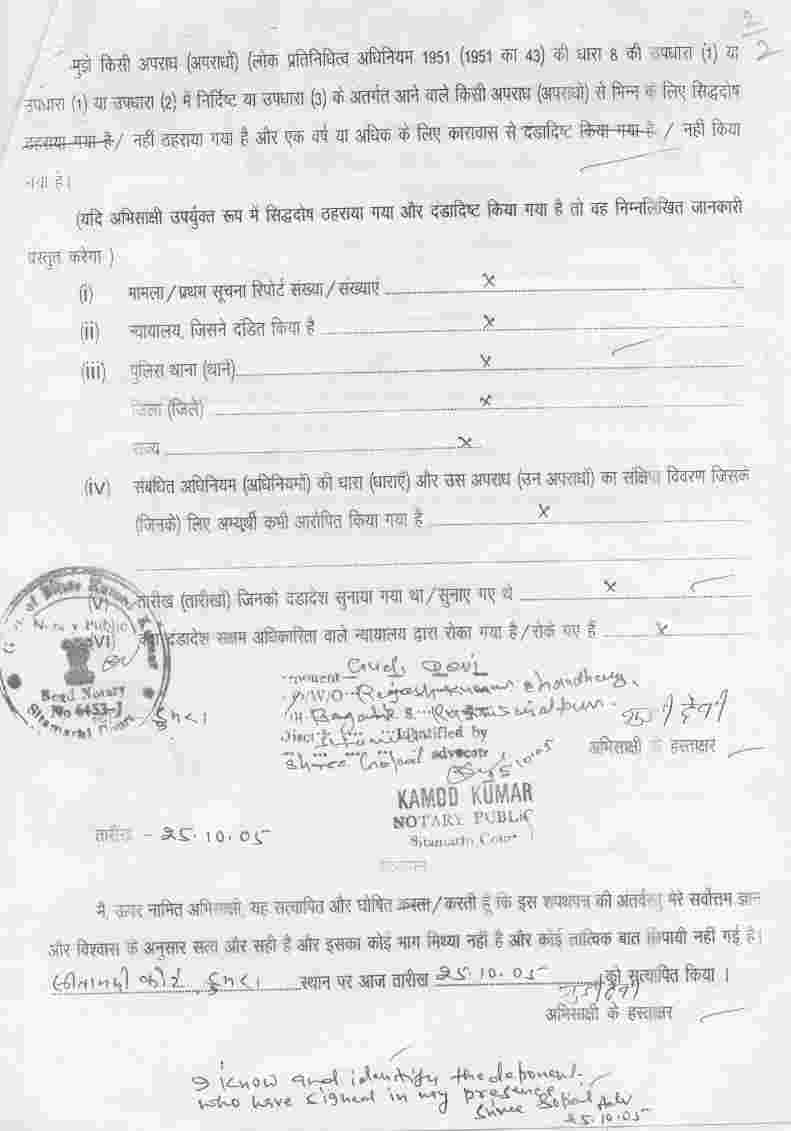 2/2
मुझे किसी अपराध (अपराधों) (लोक प्रतिनिधित्व अधिनियम 1951 (1951 का 43) की धारा 8 की उपधारा (1) या
उपधारा (1) या उपधारा (2) में निर्दिष्ट या उपधारा (3) के अंतर्गत आने वाले किसी अपराध (अपराधों) से भिन्न के लिए सिद्धदोष
ठहराया गया है / नहीं ठहराया गया है और एक वर्ष या अधिक के लिए कारावास से दंडादिष्ट किया गया है / नहीं किया
गया है।
(यदि अभिसाक्षी उपर्युक्त रूप में सिद्धदोष ठहराया गया और दंडादिष्ट किया गया है तो वह निम्नलिखित जानकारी
प्रस्तुत करेगा)
(i) मामला/प्रथम सूचना रिपोर्ट संख्या/संख्याएं x
(ii) न्यायालय, जिसने दंडित किया है x
(iii) पुलिस थाना (थाने) x
जिला (जिले) x
राज्य x
(iv) संबंधित अधिनियम (अधिनियमों) की धारा (धाराएँ) और उस अपराध (उन अपराधों) का संक्षिप्त विवरण जिसके
(जिनके) लिए अभ्यर्थी कभी आरोपित किया गया है x
(v) तारीख (तारीखों) जिनको दंडादेश सुनाया गया था/सुनाए गए थे x
(vi) क्या दंडादेश सक्षम अधिकारिता वाले न्यायालय द्वारा रोका गया है/रोके गए हैं x
Notary Public
Regd Notary
No 6453-J
Sitamarhi
डुमरा
Devi
W/O Rajesh Kumar Chandhary
Identified by
Shree Gopal advocate
25.10.05
देवी
अभिसाक्षी के हस्ताक्षर
KAMOD KUMAR
NOTARY PUBLIC
Sitamarhi, Court
तारीख - 25.10.05
सत्यापन
मैं, ऊपर नामित अभिसाक्षी, यह सत्यापित और घोषित करता/करती हूँ कि इस शपथपत्र की अंतर्वस्तु मेरे सर्वोत्तम ज्ञान
और विश्वास के अनुसार सत्य और सही है और इसका कोई भाग मिथ्या नहीं है और कोई तात्विक बात छिपायी नहीं गई है।
सीतामढ़ी कोर्ट, डुमरा स्थान पर आज तारीख 25.10.05 को सत्यापित किया।
देवी
अभिसाक्षी के हस्ताक्षर
I know and identify the deponent
who have signed in my presence
Shree Gopal Adv
25.10.05